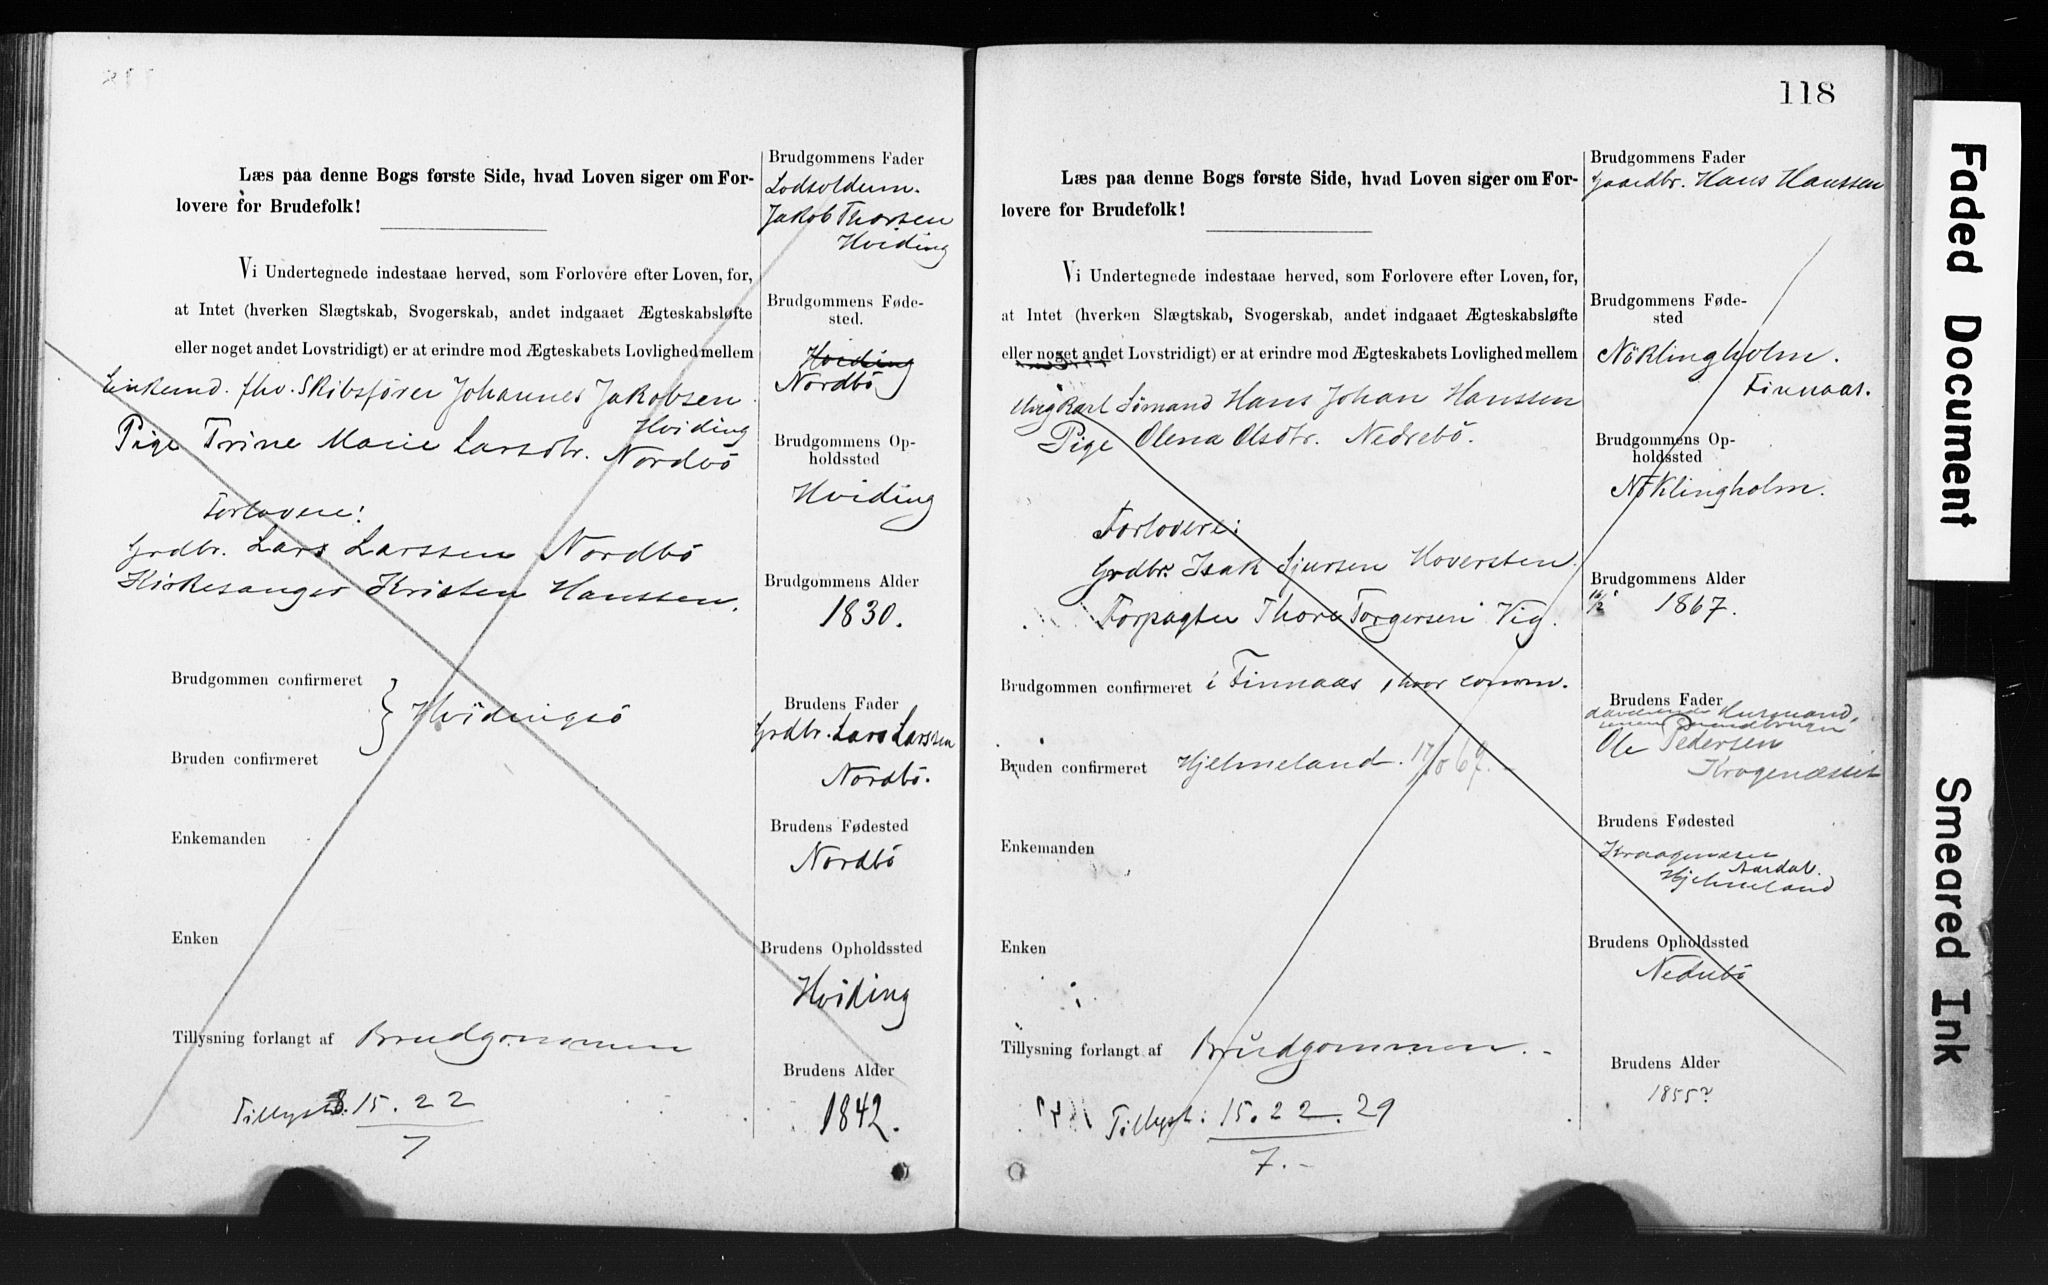 Læs paa denne Bogs første Side, hvad Loven siger om For-
lovere for Brudefolk!
Vi Undertegnede indestaae herved, som Forlovere efter Loven, for,
at Intet (hverken Slægtskab, Svogerskab, andet indgaaet Ægteskabsløfte
eller noget andet Lovstridigt) er at erindre mod Ægteskabets Lovlighed mellem
Enkemd. fhv. Skibsfører Johannes Jakobsen
Hviding
Pige Trine Marie Larsdtr. Nordbö
Forlovere:
Grdbr. Lars Larssen Nordbö
Kirkesanger Kristen Hanssen.
Brudgommen confirmeret
Hvidingsö
Bruden confirmeret
Enkemanden
Enken
Tillysning forlangt af Brudgommen
Tillyst. 15. 22
7
Brudgommens Fader
Lodsoldem.
Jakob Thorsen
Hviding
Brudgommens Føde-
sted.
Hviding
Nordbö
Brudgommens Op-
holdssted
Hviding
Brudgommens Alder
1830.
Brudens Fader
Grdbr. Lars Larssen
Nordbö.
Brudens Fødested
Nordbö
Brudens Opholdssted
Hviding
Brudens Alder
1842.
118
Læs paa denne Bogs første Side, hvad Loven siger om For-
lovere for Brudefolk!
Vi Undertegnede indestaae herved, som Forlovere efter Loven, for,
at Intet (hverken Slægtskab, Svogerskab, andet indgaaet Ægteskabsløfte
eller noget andet Lovstridigt) er at erindre mod Ægteskabets Lovlighed mellem
Ungkarl Sömand Hans Johan Hanssen
Pige Olena Olsdtr. Nedrebö.
Forlovere:
Grdbr. Isak Sjursen Hoversten.
Forpagter Thore Torgersen Vig.
Brudgommen confirmeret i Finnaas, hvor comm.
Bruden confirmeret Hjelmeland. 17/10 69.
Enkemanden
Enken
Tillysning forlangt af Brudgommen.
Tillyst: 15. 22. 29
7.
Brudgommens Fader
Gaardbr. Hans Hanssen
Brudgommens Føde-
sted
Nöklingholm.
Finnaas.
Brudgommens Op-
holdssted
Nöklingholm.
Brudgommens Alder
16/12 1867.
Brudens Fader
Husmand,
Ole Pedersen
Kragenæsset
Brudens Fødested
Kraagenæsset
Aardal.
Hjelmeland
Brudens Opholdssted
Nedrebö
Brudens Alder
1855?
Faded Document
Smeared Ink